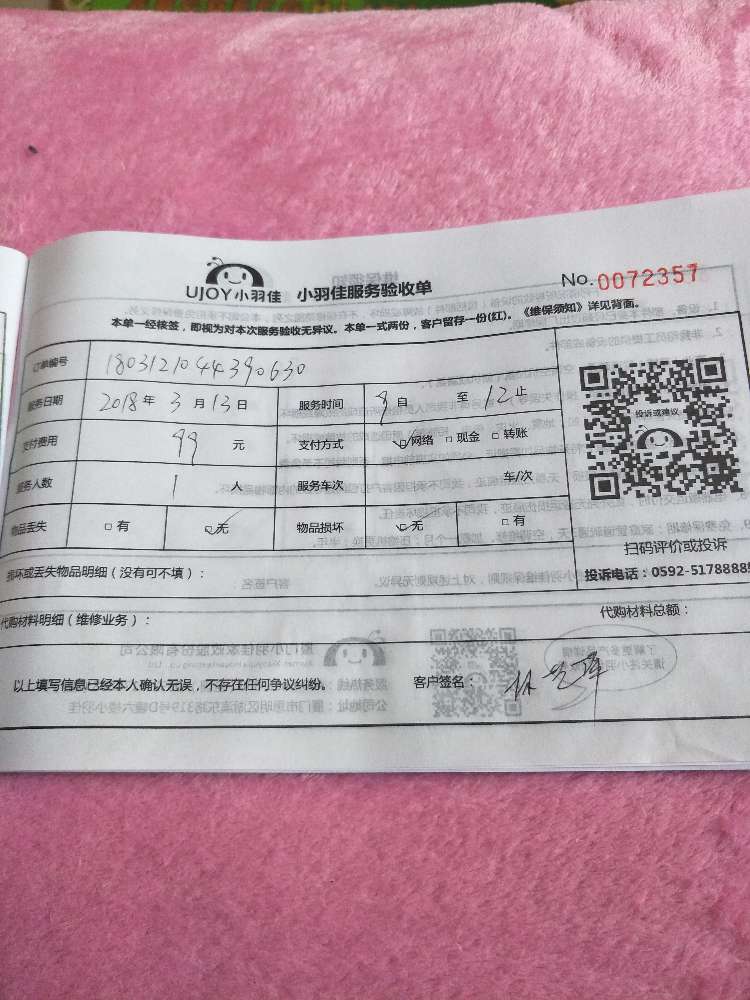 UJOY小羽佳 小羽佳服务验收单 No.0072357
本单一经核签，即视为对本次服务验收无异议。本单一式两份，客户留存一份(红)。《维保须知》详见背面。
订单编号 1803121044390630
服务日期 2018年3月13日 服务时间 8自 至12止
支付费用 99元 支付方式 ☑网络 □现金 □转账
服务人数 1人 服务车次 车/次
物品丢失 □有 ☑无 物品损坏 ☑无 □有
投诉或建议
扫码评价或投诉
投诉电话：0592-5178888
损坏或丢失物品明细（没有可不填）：
代购材料明细（维修业务）： 代购材料总额：
以上填写信息已经本人确认无误，不存在任何争议纠纷。 客户签名：林